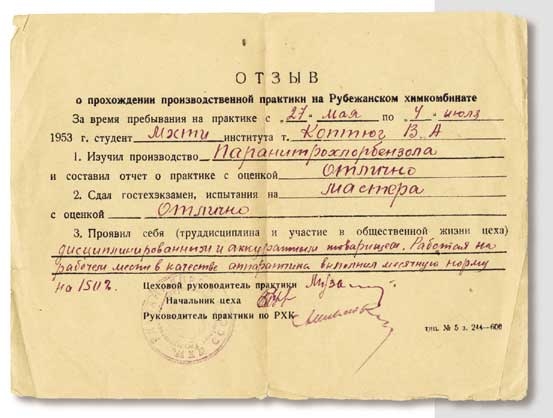 ОТЗЫВ
о прохождении производственной практики на Рубежанском химкомбинате
За время пребывания на практике с „27“ мая по „4“ июля
1953 г. студент МХТИ института т. Коптюг В. А
1. Изучил производство Паранитрохлорбензола
и составил отчет о практике с оценкой отлично
2. Сдал гостехэкзамен, испытания на мастера
с оценкой Отлично
3. Проявил себя (труддисциплина и участие в общественной жизни цеха)
дисциплинированным и аккуратным товарищем. Работая на
рабочем месте в качестве аппаратчика выполнил месячную норму
на 150%.
Цеховой руководитель практики
Начальник цеха
Руководитель практики по РХК
тип. № 5 з. 244—600